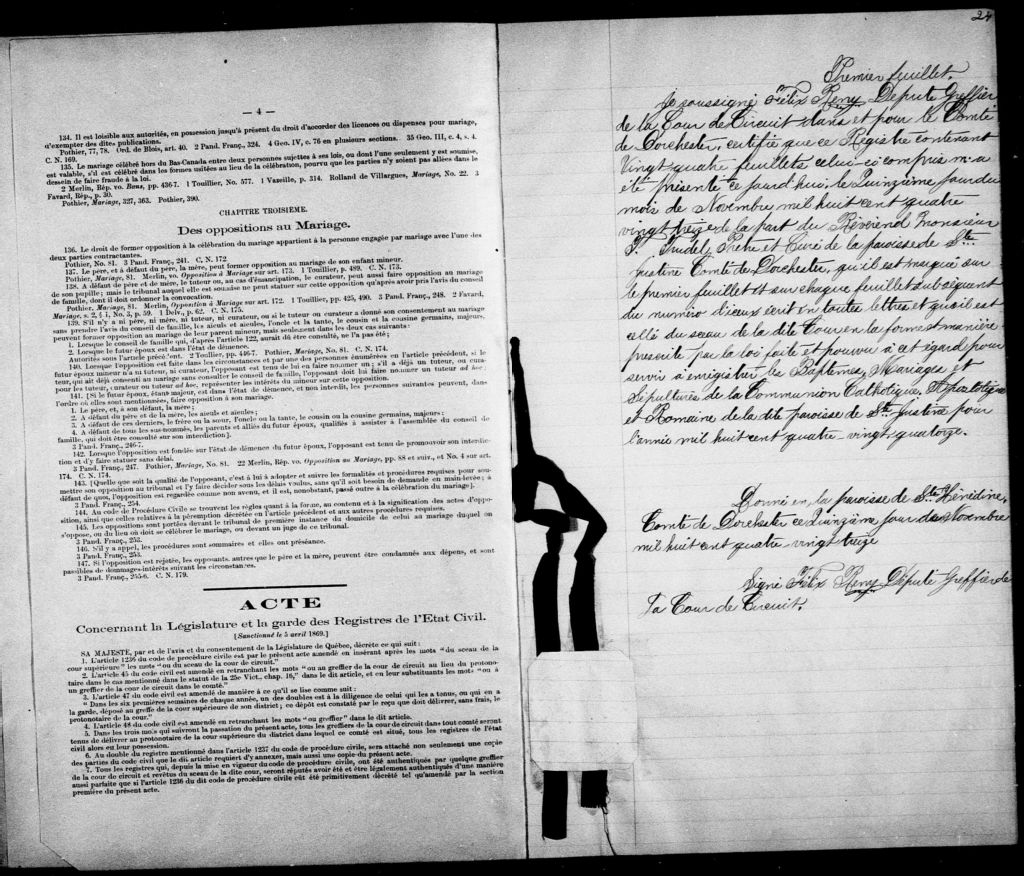 — 4 —
134. Il est loisible aux autorités, en possession jusqu'à présent du droit d'accorder des licences ou dispenses pour mariage,
d'exempter des dites publications.
Pothier, 77, 78. Ord. de Blois, art. 40. 2 Pand. Franç., 324. 4 Geo. IV, c. 76 en plusieurs sections. 35 Geo. III, c. 4, s. 4.
C. N. 169.
135. Le mariage célébré hors du Bas-Canada entre deux personnes sujettes à ses lois, ou dont l'une seulement y est soumise,
est valable, s'il est célébré dans les formes usitées au lieu de la célébration, pourvu que les parties n'y soient pas allées dans le
dessein de faire fraude à la loi.
2 Merlin, Rép. vo. Bans, pp. 436-7. 1 Touillier, No. 577. 1 Vazeille, p. 314. Rolland de Villargues, Mariage, No. 22. 3
Favard, Rép., p. 30.
Pothier, Mariage, 327, 363. Pothier, 390.
CHAPITRE TROISIEME.
Des oppositions au Mariage.
136. Le droit de former opposition à la célébration du mariage appartient à la personne engagée par mariage avec l'une des
deux parties contractantes.
Pothier, No. 81. 3 Pand. Franç., 241. C. N. 172.
137. Le père, et à défaut du père, la mère, peut former opposition au mariage de son enfant mineur.
Pothier, Mariage, 81. Merlin, vo. Opposition à Mariage sur art. 173. 1 Touillier, p. 489. C. N. 173.
138. A défaut de père et de mère, le tuteur ou, au cas d'émancipation, le curateur, peut aussi faire opposition au mariage
de son pupille; mais le tribunal auquel elle est soumise ne peut statuer sur cette opposition qu'après avoir pris l'avis du conseil
de famille, dont il doit ordonner la convocation.
Pothier, Mariage, 81. Merlin, Opposition à Mariage sur art. 172. 1 Touillier, pp. 425, 490. 3 Pand. Franç., 248. 2 Favard,
Mariage, s. 2, § i, No. 3, p. 59. 1 Delv., p. 62. C. N. 175.
139. S'il n'y a ni père, ni mère, ni tuteur, ni curateur, ou si le tuteur ou curateur a donné son consentement au mariage
sans prendre l'avis du conseil de famille, les aieuls et aieules, l'oncle et la tante, le cousin et la cousine germains, majeurs,
peuvent former opposition au mariage de leur parent mineur, mais seulement dans les deux cas suivants:
1. Lorsque le conseil de famille qui, d'après l'article 122, aurait dû être consulté, ne l'a pas été;
2. Lorsque le futur époux est dans l'état de démence.
Autorités sous l'article précé'ent. 2 Touillier, pp. 446-7. Pothier, Mariage, No. 81. C. N. 174.
140. Lorsque l'opposition est faite dans les circonstances et par une des personnes énumérées en l'article précédent, si le
futur époux mineur n'a ni tuteur, ni curateur, l'opposant est tenu de lui en faire nommer un; s'il a déjà un tuteur, ou cura-
teur, qui ait déjà consenti au mariage sans consulter le conseil de famille, l'opposant doit lui faire nommer un tuteur ad hoc;
pour les tuteur, curateur ou tuteur ad hoc, représenter les intérêts du mineur sur cette opposition.
141. [Si le futur époux, étant majeur, est dans l'état de démence, et non interdit, les personnes suivantes peuvent, dans
l'ordre où elles sont mentionnées, faire opposition à son mariage.
1. Le père, et, à son défaut, la mère;
2. A défaut du père et de la mère, les aieuls et aieules;
3. A défaut de ces derniers, le frère ou la sœur, l'oncle ou la tante, le cousin ou la cousine germains, majeurs;
4. A défaut de tous les sus-nommés, les parents et alliés du futur époux, qualifiés à assister à l'assemblée du conseil de
famille, qui doit être consulté sur son interdiction].
3 Pand. Franç., 246-7.
142. Lorsque l'opposition est fondée sur l'état de démence du futur époux, l'opposant est tenu de promouvoir son interdic-
tion et d'y faire statuer sans délai.
3 Pand. Franç., 247. Pothier, Mariage, No. 81. 22 Merlin, Rép. vo. Opposition au Mariage, pp. 88 et suiv., et No. 4 sur art.
174. C. N. 174.
143. [Quelle que soit la qualité de l'opposant, c'est à lui à adopter et suivre les formalités et procédures requises pour sou-
mettre son opposition au tribunal et l'y faire décider sous les délais voulus, sans qu'il soit besoin de demande en main-levée; à
défaut de quoi, l'opposition est regardée comme non avenu, et il est, nonobstant, passé outre à la célébration du mariage].
3 Pand. Franç., 254.
144. Au code de Procédure Civile se trouvent les règles quant à la forme, au contenu et à la signification des actes d'oppo-
sition, ainsi que celles relatives à la péremption décrétée en l'article précédent et aux autres procédures requises.
145. Les oppositions sont portées devant le tribunal de première instance du domicile de celui au mariage duquel on
s'oppose, ou du lieu où doit se célébrer le mariage, ou devant un juge de ce tribunal.
3 Pand. Franç., 253.
146. S'il y a appel, les procédures sont sommaires et elles ont préséance.
3 Pand. Franç., 253.
147. Si l'opposition est rejetée, les opposants, autres que le père et la mère, peuvent être condamnés aux dépens, et sont
passibles de dommages-intérêts suivant les circonstances.
3 Pand. Franç., 255-6. C. N. 179.
ACTE
Concernant la Législature et la garde des Registres de l'Etat Civil.
[Sanctionné le 5 avril 1869.]
SA MAJESTE, par et de l'avis et du consentement de la Législature de Québec, décrète ce qui suit:
1. L'article 1236 du code de procédure civile est par le présent acte amendé en insérant après les mots "du sceau de la
cour supérieure" les mots "ou du sceau de la cour de circuit."
2. L'article 45 du code civil est amendé en retranchant les mots "ou au greffier de la cour de circuit au lieu du protono-
taire dans le cas mentionné dans le statut de la 25e Vict., chap. 16," dans le dit article, et en leur substituants les mots "ou à
un greffier de la cour de circuit dans le comté."
3. L'article 47 du code civil est amendé de manière à ce qu'il se lise comme suit:
"Dans les six premières semaines de chaque année, un des doubles est à la diligence de celui qui les a tenus, ou qui en a
la garde, déposé au greffe de la cour supérieure de son district; ce dépôt est constaté par le reçu que doit délivrer, sans frais, le
protonotaire de la cour."
4. L'article 48 du code civil est amendé en retranchant les mots "ou greffier" dans le dit article.
5. Dans les trois mois qui suivront la passation du présent acte, tous les greffiers de la cour de circuit dans tout comté seront
tenus de délivrer au protonotaire de la cour supérieure du district dans lequel ce comté est situé, tous les registres de l'état
civil alors en leur possession.
6. Au double du registre mentionné dans l'article 1237 du code de procédure civile, sera attaché non seulement une copie
des parties du code civil que le dit article requiert d'y annexer, mais aussi une copie du présent acte.
7. Tous les registres qui, depuis la mise en vigueur du code de procédure civile, ont été authentiqués par quelque greffier
de la cour de circuit et revêtus du sceau de la dite cour, seront réputés avoir été et être légalement authentiqués d'une manière
aussi parfaite que si l'article 1236 du dit code de procédure civile eût été primitivement décrété tel qu'amendé par la section
première du présent acte.
24
Premier feuillet.
Je soussigné Félix Remy Député Greffier
de la Cour de Circuit dans et pour le Comté
de Dorchester, certifie que ce Registre contenant
Vingt quatre feuillets celui-ci compris m'a
été présenté ce jourd'hui, le Quinzième jour du
mois de Novembre mil huit cent quatre
vingt treize de la part du Révérend Monsieur
Trudel, Prêtre et Curé de la paroisse de Ste
Justine Comté de Dorchester, qu'il est marqué sur
le premier feuillet et sur chaque feuillet subséquent
du numéro d'iceux écrit en toutes lettres et qu'il est
cellé du sceau de la dite Cour en la forme et manière
prescrite par la loi faite et pourvu à cet égard pour
servir à enrégistrer les Baptêmes, Mariages et
Sépultures de la Communion Catholique, Apostolique
et Romaine de la dite paroisse de Ste Justine pour
l'année mil huit cent quatre-vingt quatorze.
Donné en la paroisse de Ste Hénédine,
Comté de Dorchester ce Quinzième jour de Novembre
mil huit cent quatre vingt treize
Signé Félix Remy Député Greffier de
la Cour de Circuit.